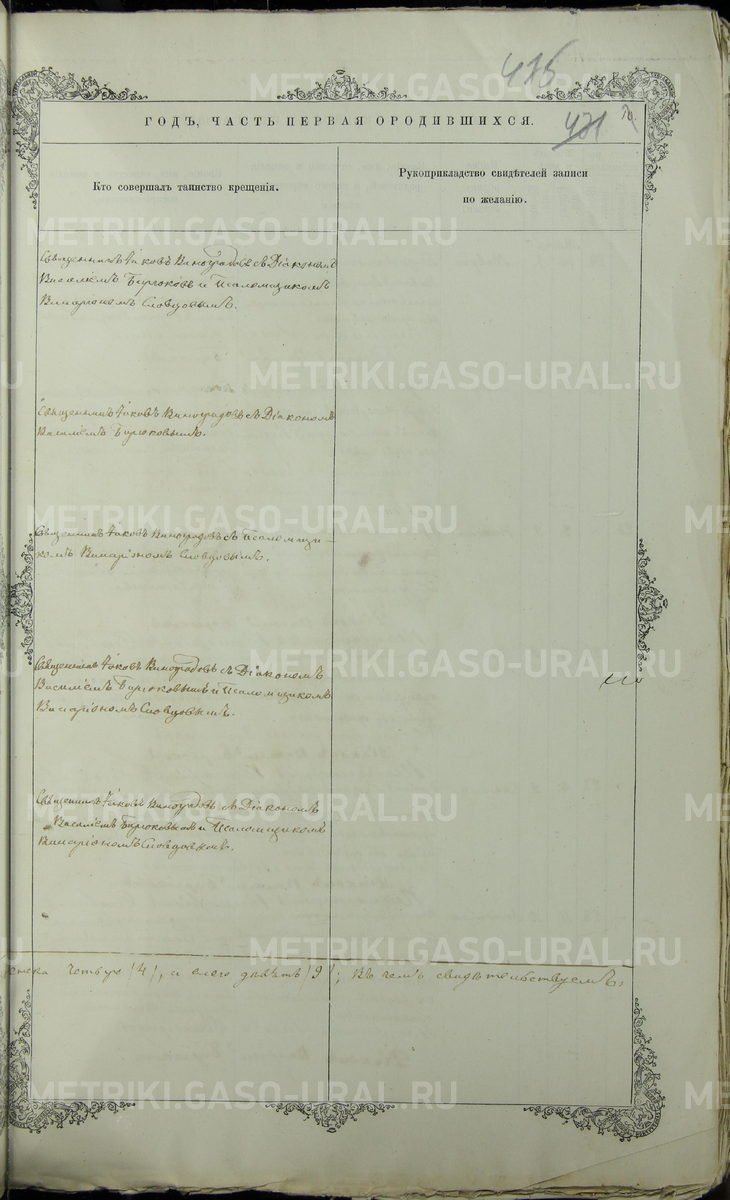 475
ГОДЪ, ЧАСТЬ ПЕРВАЯ ОРОДИВШИХСЯ.
471
70.
Кто совершалъ таинство крещенія.
Рукоприкладство свидѣтелей записи
по желанію.
Священникъ Іаковъ Виноградовъ съ Діакономъ
Василіемъ Бирюковы и Псаломщикомъ
Слобцовымъ.
Священникъ Іаковъ Виноградовъ съ Діакономъ
Василіемъ Бирюковымъ.
Священникъ Іаковъ Виноградовъ съ Псаломщи-
комъ Словцовымъ.
Священникъ Іаковъ Виноградовъ съ Діакономъ
Василіемъ Бирюковымъ и Псаломщикомъ
Словцовымъ.
Священникъ Іаковъ Виноградовъ съ Діакономъ
Василіемъ Бирюковымъ и Псаломщикомъ
Словцовымъ.
четыре /4/, а всего девять /9/; въ чемъ свидѣтельствуемъ:
METRIKI.GASO-URAL.RU